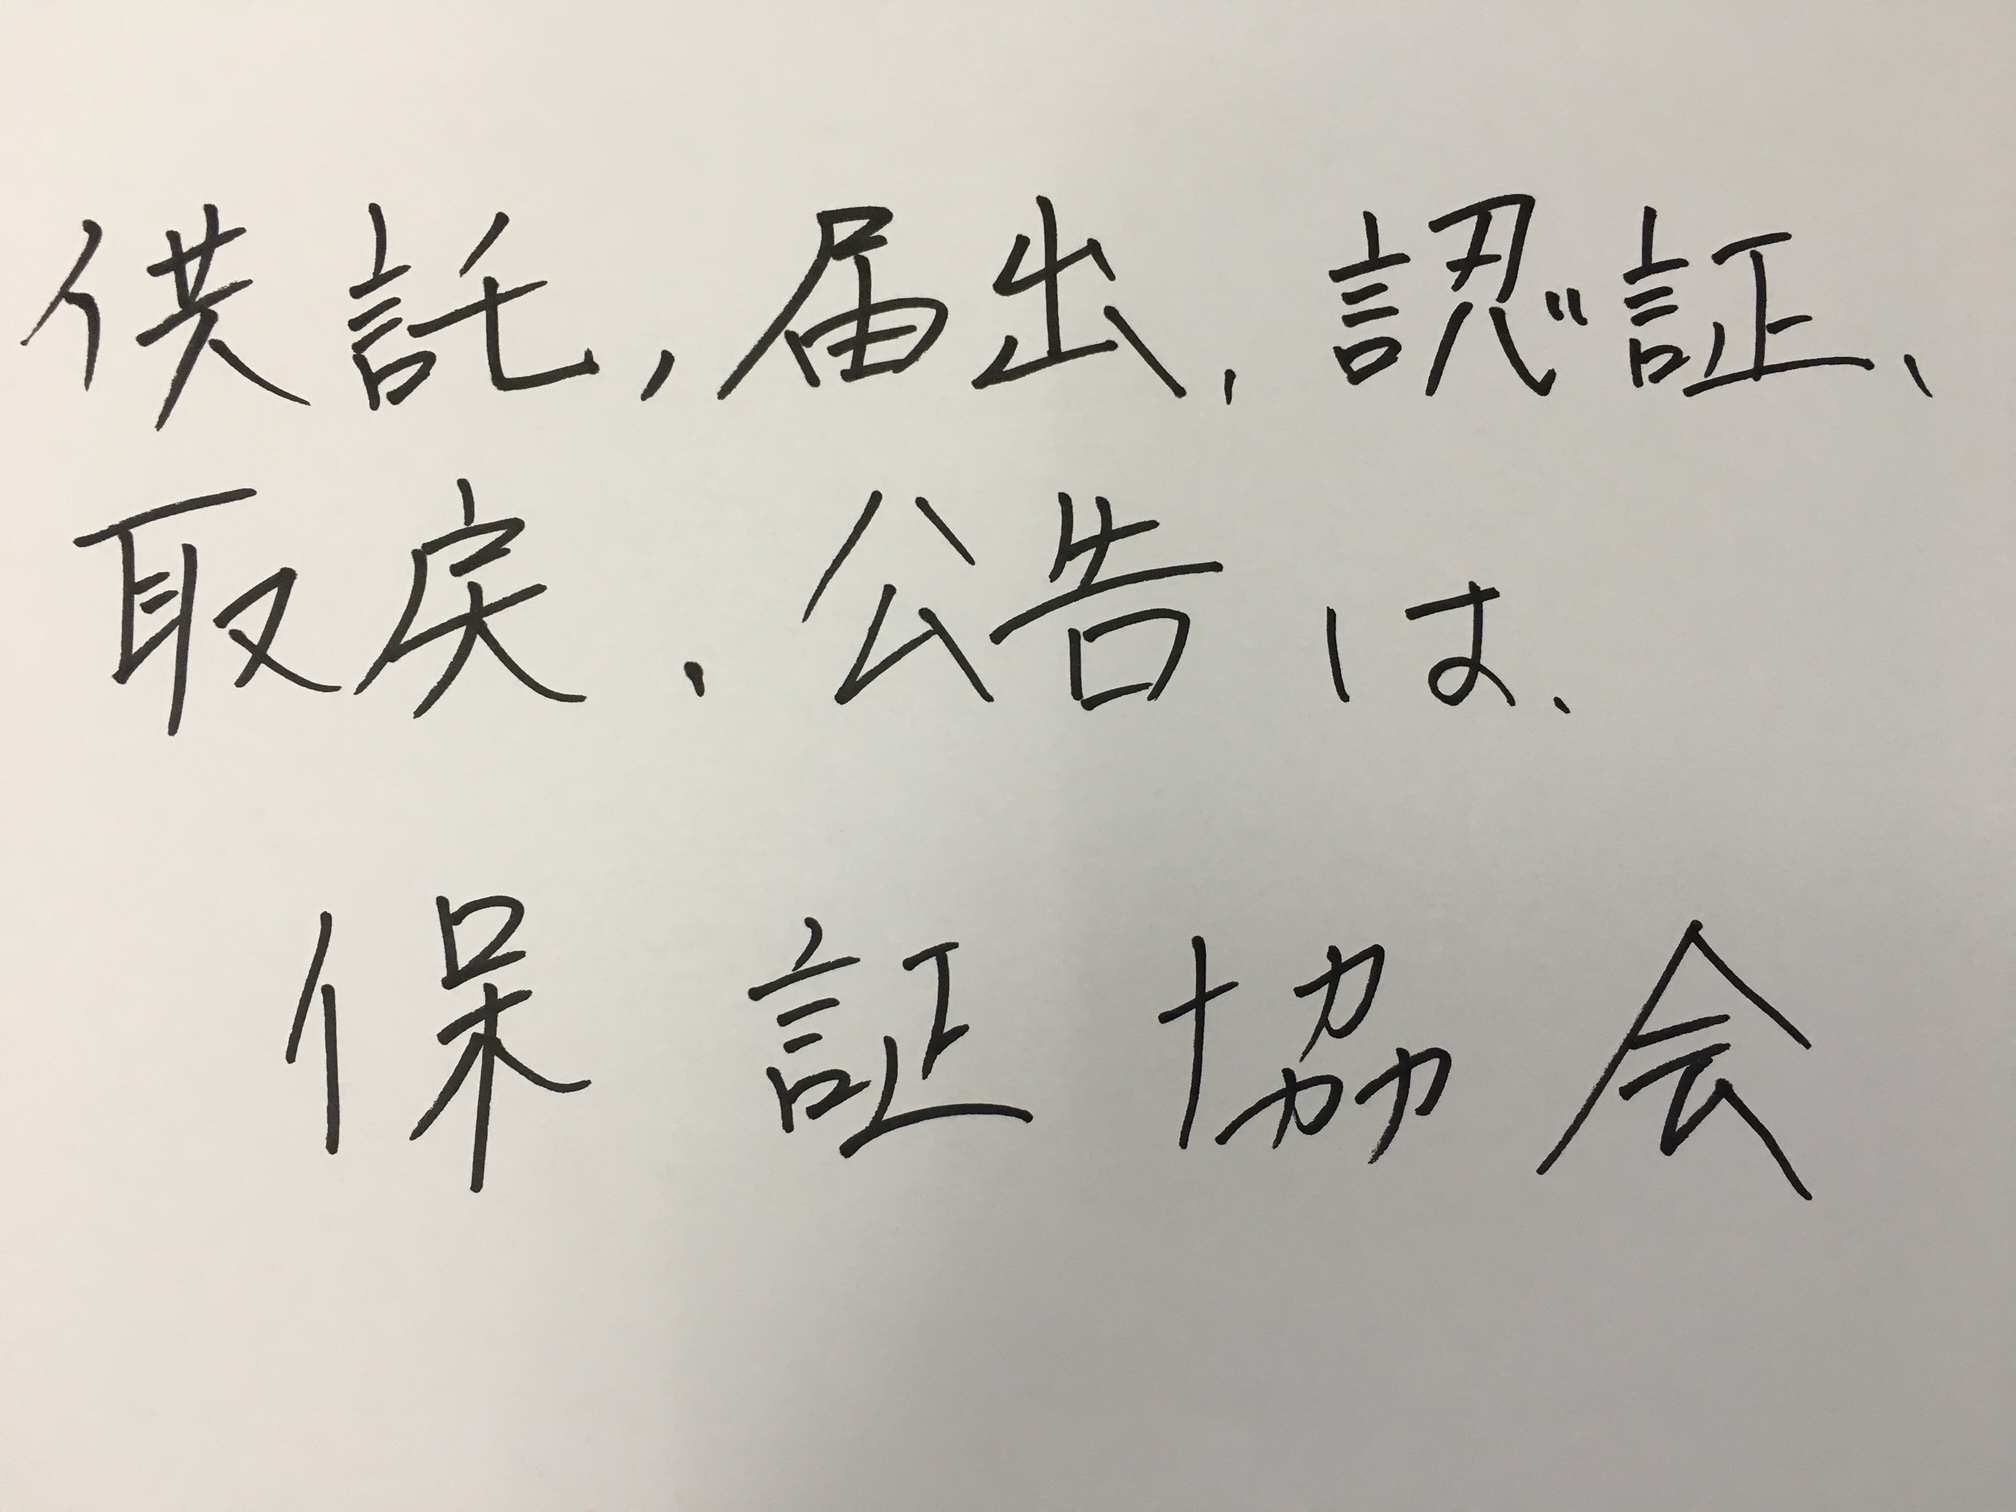 供託、届出、認証、
取戻、公告は、
保証協会